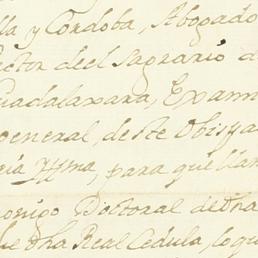 lla y Cordoba, Abogado
ector deel Sagrario d
Guadalaxara, Exami
general, deste Obispa
ria Yllma, para que llam
onigo Doctoral de dha
dha Real Cedula, lo qu